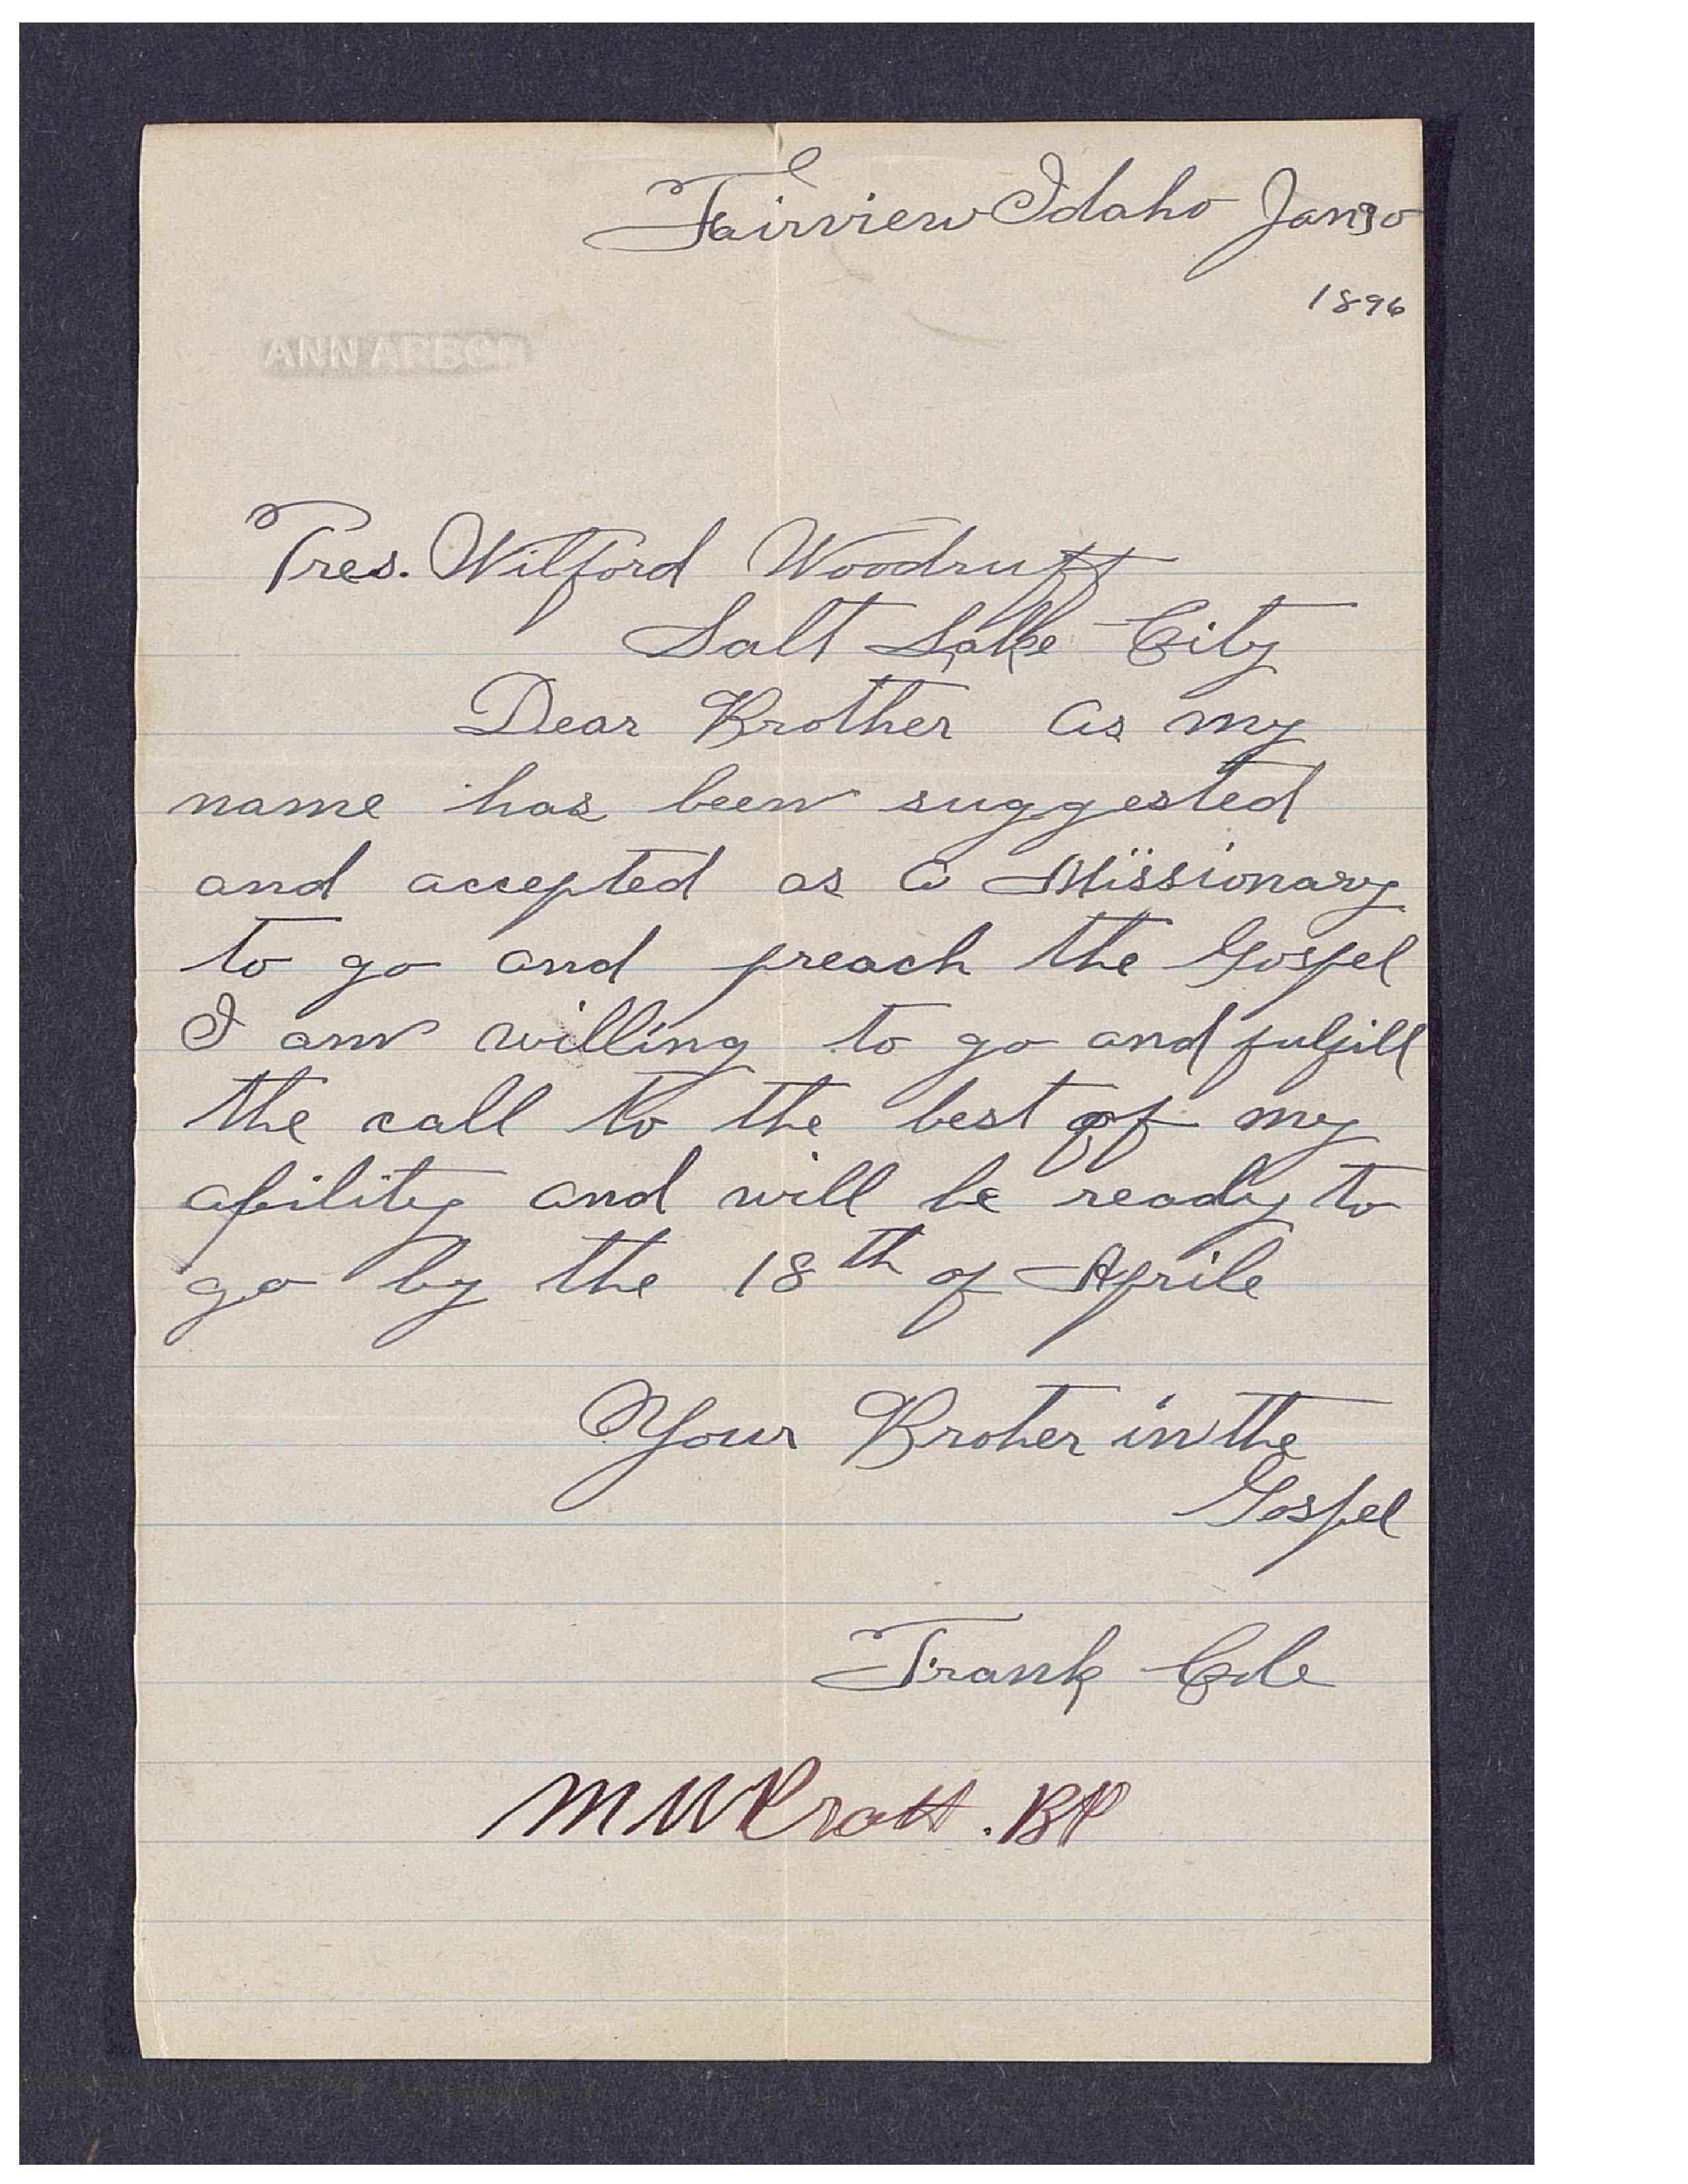 Fairview Idaho Jan 30
1896
ANN ARBOR
Pres. Wilford Woodruff
Salt Lake City
Dear Brother As my
name has been suggested
and accepted as a Missionary
to go and preach the Gospel
I am willing to go and fulfill
the call to the best of my
ability and will be ready to
go by the 18th of Aprile
Your Broher in the
Gospel
Frank Cole
M W Pratt. BP